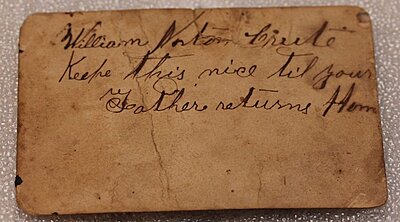 William Norton Creité
Keepe this nice til your
Father returns Hom